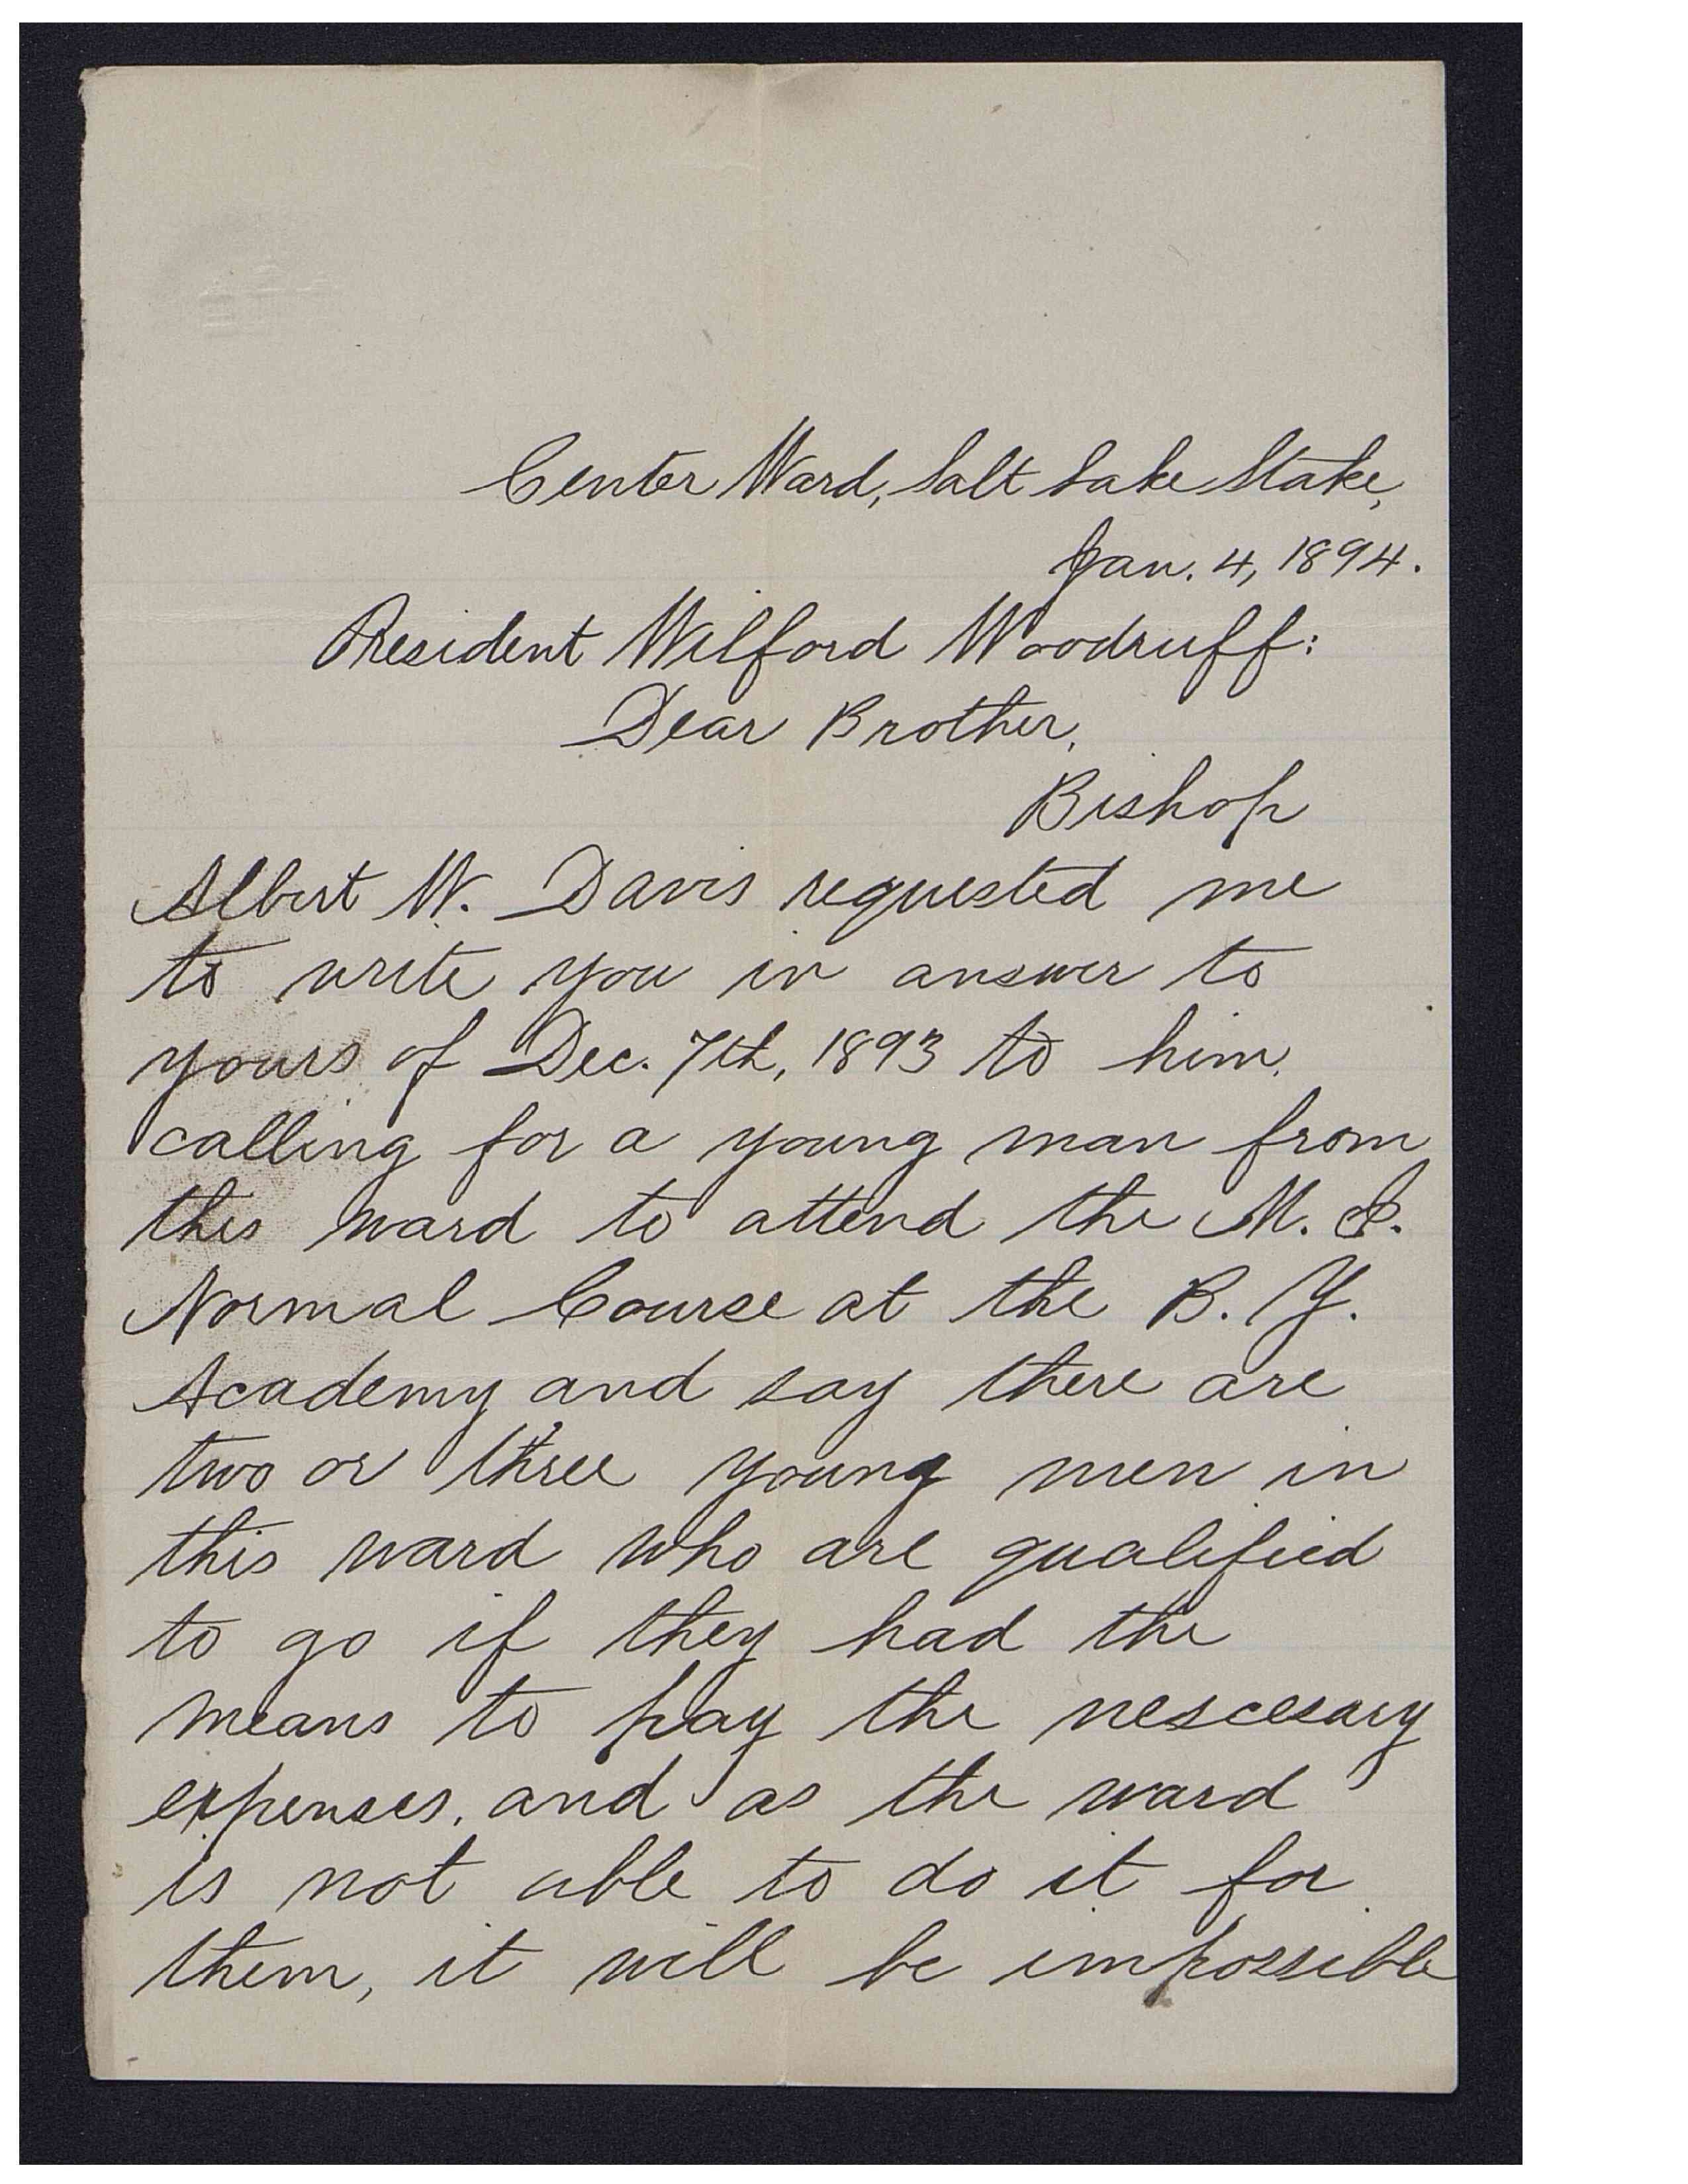 Center Ward, Salt Lake Stake,
Jan. 4, 1894.
President Wilford Woodruff:
Dear Brother,
Bishop
Albert W. Davis requested me
to write you in answer to
yours of Dec. 7th, 1893 to him,
calling for a young man from
this ward to attend the M. I.
Normal Course at the B. Y.
Academy and say there are
two or three young men in
this ward who are qualified
to go if they had the
means to pay the nescesary
expenses, and as the ward
is not able to do it for
them, it will be impossible